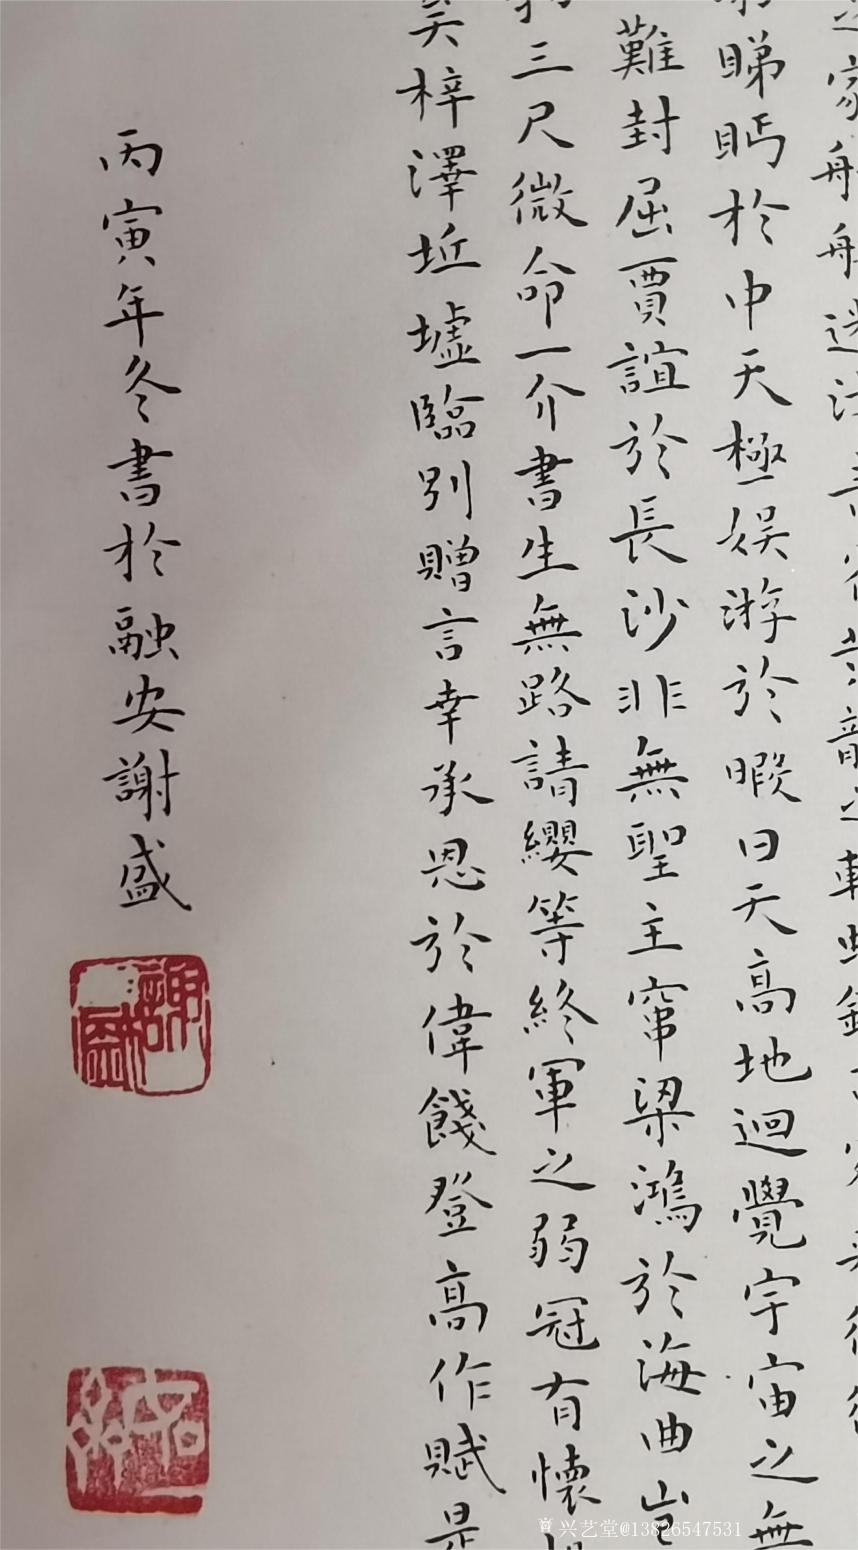 睇眄於中天極娱游於暇日天高地迴覺宇宙之無
難封屈賈誼於長沙非無聖主竄梁鴻於海曲豈
三尺微命一介書生無路請纓等終軍之弱冠有懷
矣梓澤坵墟臨別贈言幸承恩於偉餞登高作賦是
丙寅年冬書於融安謝盛
謝盛
兴艺堂@13826547531